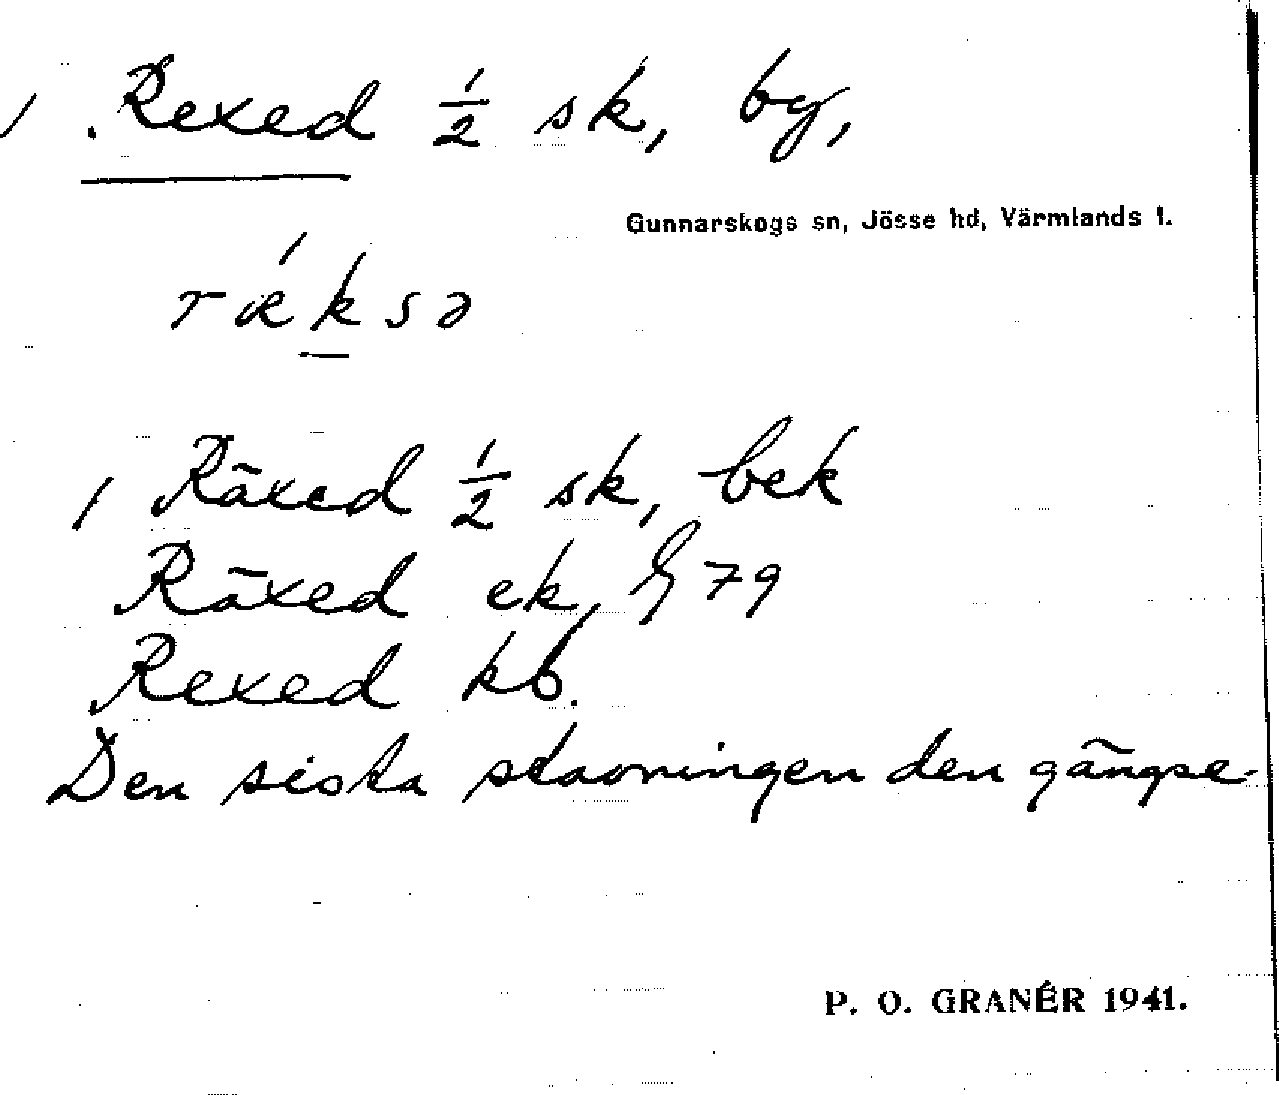 1 Rexed 1/2 sk, by,
Gunnarskogs sn, Jösse hd, Värmlands l.
rǽksə
1 Räxed 1/2 sk, bek
Räxed ek, G 79
Rexed kb.
Den sista stavningen den gängse
P. O. GRANÉR 1941.